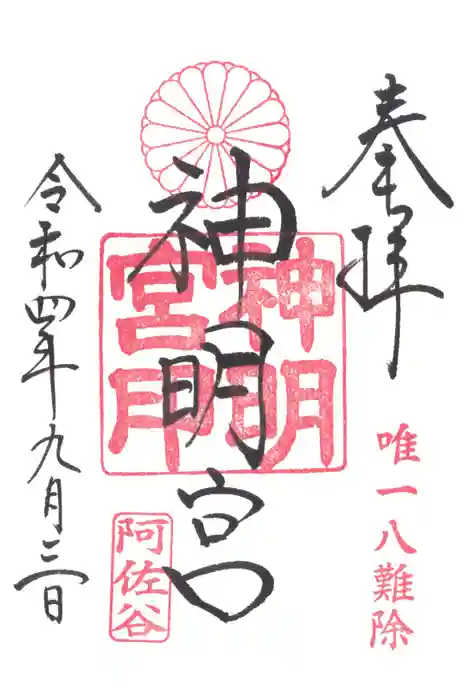 奉拝
唯一八難除
神明宮
神明宮印
阿佐谷
令和四年九月三日